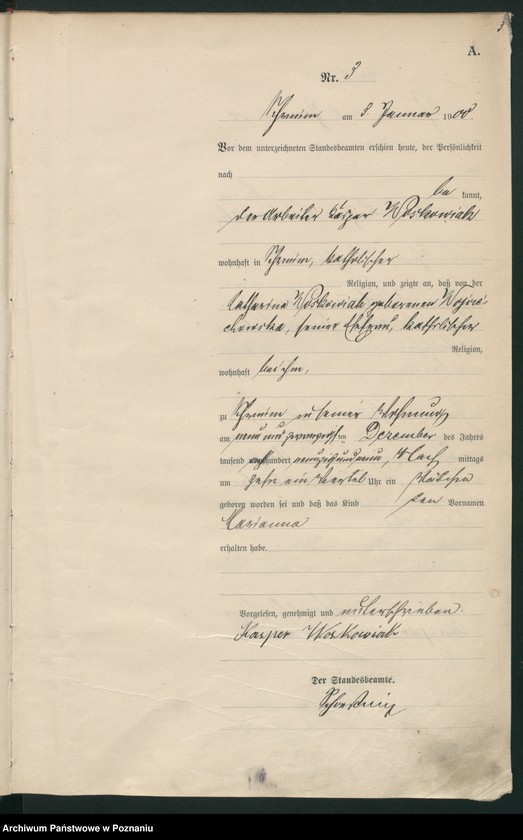 3
A.
Nr. 3
Schrimm am 3. Januar 1900.
Vor dem unterzeichneten Standesbeamten erschien heute, der Persönlichkeit
nach
be kannt,
der Arbeiter Kaspar Woskowiak
wohnhaft in Schrimm, katholischer
Religion, und zeigte an, daß von der
Catharina Woskowiak geborenen Wojcie-
chowska, seiner Ehefrau, katholischer
Religion,
wohnhaft bei ihm,
zu Schrimm in seiner Wohnung
am neun und zwanzigsten Dezember des Jahres
tausend achthundert neunzig und neun, Nach mittags
um zehn ein Viertel Uhr ein Mädchen
geboren worden sei und daß das Kind den Vornamen
Marianna
erhalten habe.
Vorgelesen, genehmigt und unterschrieben.
Kasper Woskowiak
Der Standesbeamte.
Archiwum Państwowe w Poznaniu